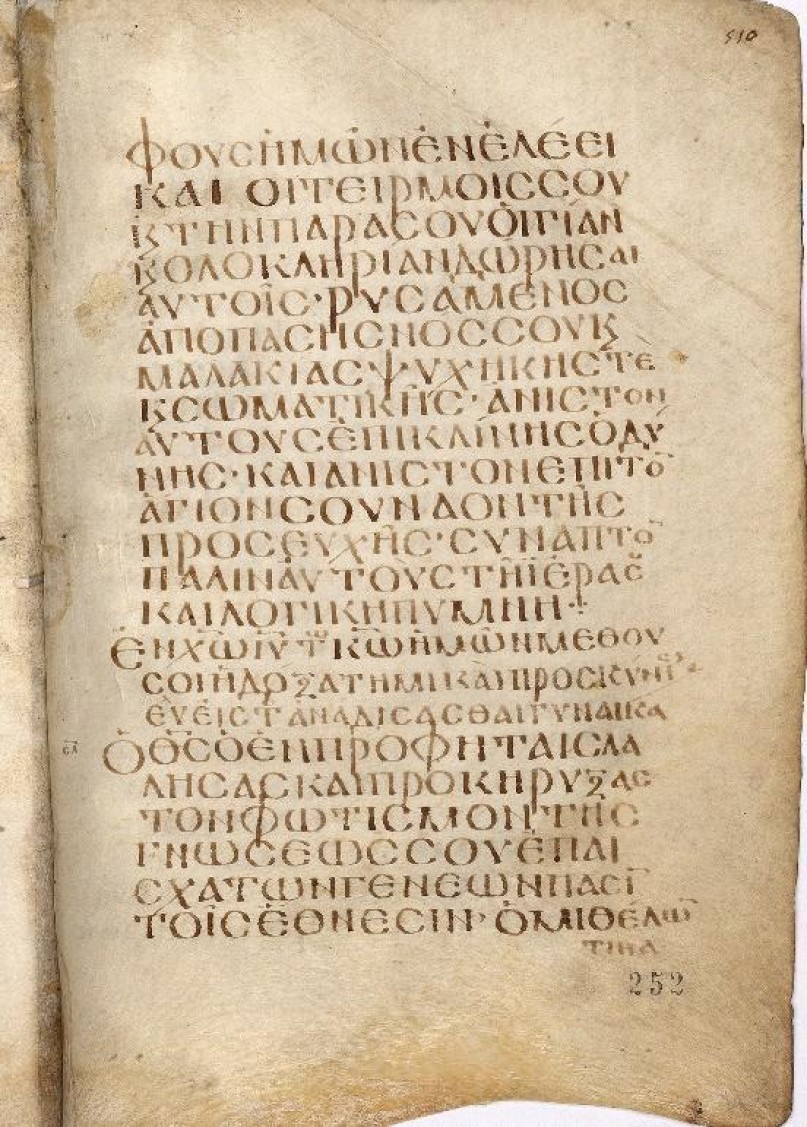 510
ΦΟΥСΗΜѠΝΕΝΕΛΕΕΙ
ΚΑΙ ΟΙΤΕΙΡΜΟΙССΟΥ
ΤΗΝΠΑΡΑСΟΥΟΙΓΙΑΝ
ϗΟΛΟΚΛΗΡΙΑΝΔѠΡΗСΑΙ
ΑΥΤΟΙС·ΡΥСΑΜΕΝΟС
ΑΠΟΠΑСΗСΝΟССΟΥϗ
ΜΑΛΑΚΙΑСΨΥΧΗΚΗСΤΕ
ϗСѠΜΑΤΙΚΗС·ΑΝΙСΤΟΝ
ΑΥΤΟΥСΕΠΙΚΛΙΝΗСΟΔΥ
ΝΗС·ΚΑΙΑΝΙСΤΟΝΕΠΙΤΟ
ΑΓΙΟΝСΟΥΝΑΟΝΤΗС
ΠΡΟСΕΥΧΗС·СΥΝΑΠΤΟ
ΠΑΛΙΝΑΥΤΟΥСΤΗΙΕΡΑС
ΚΑΙΛΟΓΙΚΗΠΥΜΝΗ
ΕΝΧѠΙΥΤѠΚѠΗΜѠΝΜΕΘΟΥ
СΟΙΗΔΟΞΑΤΗΜΙΚΑΙΠΡΟСΚΥΝΗ
ΕΥΕΙСΤΑΝΑΔΙСΑСΘΑΙΓΥΝΑΙΚΑ
ΟΘСΟΕΝΠΡΟΦΗΤΑΙСΛΑ
ΛΗСΑСΚΑΙΠΡΟΚΗΡΥΞΑС
ΤΟΝΦѠΤΙСΜΟΝΤΗС
ΓΝѠСΕѠССΟΥΕΠΑΙ
СΧΑΤѠΝΓΕΝΕѠΝΠΑСΙ
ΤΟΙСΕΘΝΕСΙΝ· ΟΜΙΘΕΛѠ
ΤΙΝΑ
252